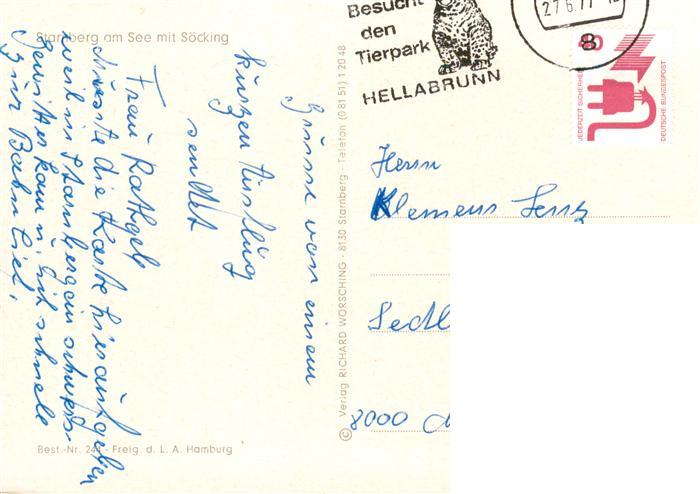 Starnberg am See mit Söcking
Grüsse von einem
kurzen Ausflug
sendet
Frau Rathgeb
Musste die Karte hier aufgeben
weil in Starnberg ein
Gewitter kam u. ich schnell
zur Bahn lief.
Best.-Nr. 244 - Freig. d. L. A. Hamburg
© Verlag RICHARD WÖRSCHING - 8130 Starnberg - Telefon (0 81 51) 1 20 48
Besucht
den
Tierpark
HELLABRUNN
27.6.77
8
JEDERZEIT SICHERHEIT
DEUTSCHE BUNDESPOST
Herrn
Klemens
Sedl
8000